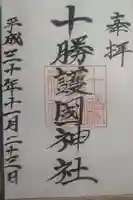 奉拝
十勝護國神社
平成三十年十一月二十三日